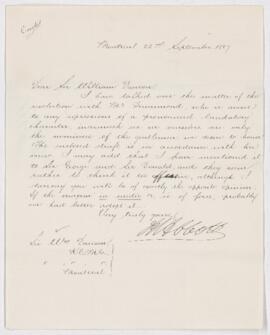 Montreal 22nd September 1887
Dear Sir William Dawson
I have talked over the matter of the
resolution with Mr Drummond, who is averse
to any expressions of a pronounced laudatory
character, inasmuch as we ourselves are only
the nominees of the gentlemen we desire to honor
The inclosed draft is in accordance with his
views. I may add that I have mentioned it
to Sir George and Sir Donald, and they seem
rather to think it so effusive, although I
daresay you will be of exactly the opposite opinion.
If the enclosed in order is of force, probably
we had better adopt it.
Very truly yours
Sir Wm Dawson
Montreal